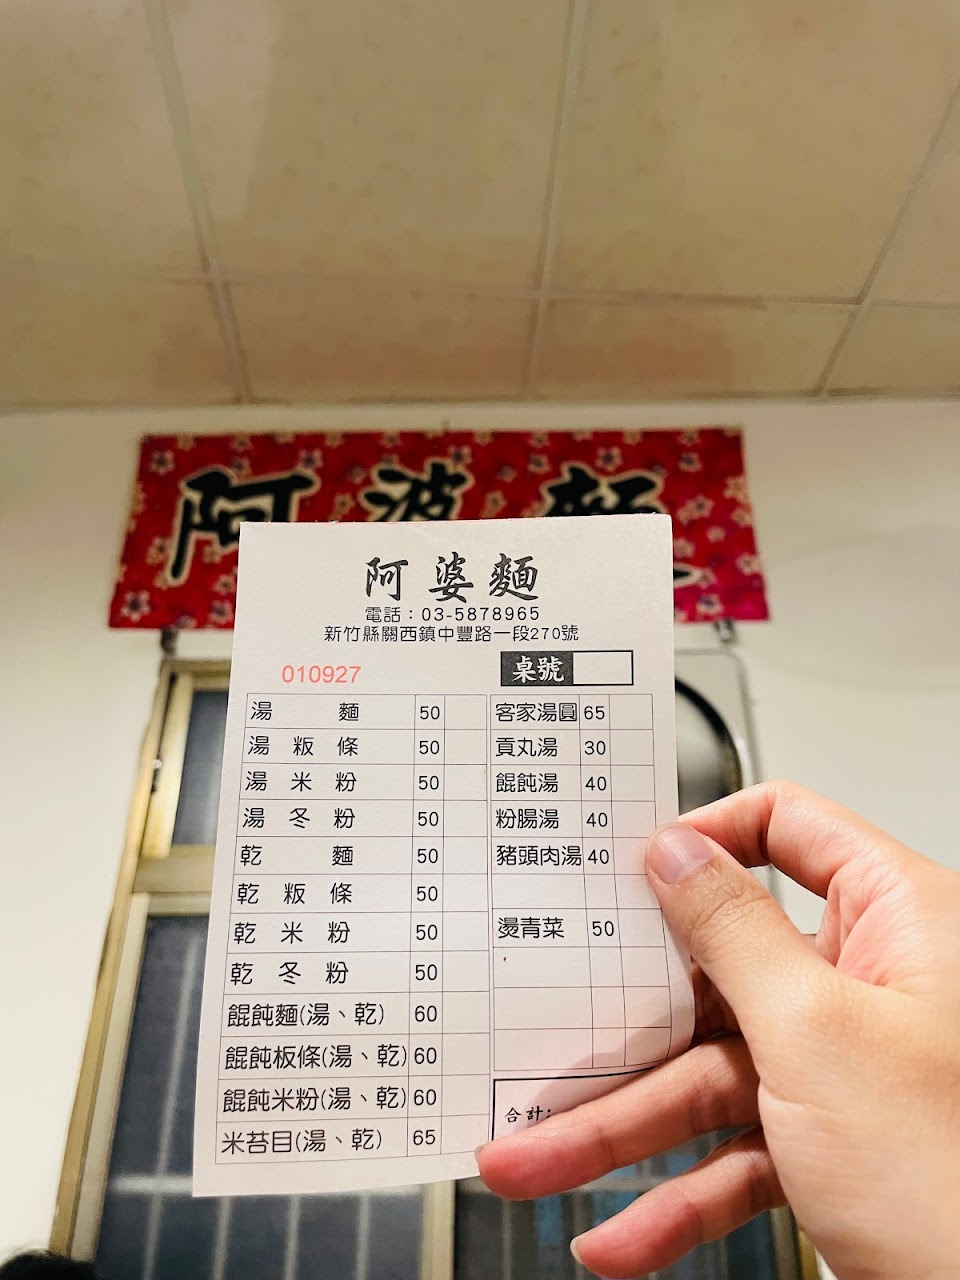 阿婆麵
阿婆麵
電話：03-5878965
新竹縣關西鎮中豐路一段270號
010927
桌號
湯麵 50
湯粄條 50
湯米粉 50
湯冬粉 50
乾麵 50
乾粄條 50
乾米粉 50
乾冬粉 50
餛飩麵(湯、乾) 60
餛飩板條(湯、乾) 60
餛飩米粉(湯、乾) 60
米苔目(湯、乾) 65
客家湯圓 65
貢丸湯 30
餛飩湯 40
粉腸湯 40
豬頭肉湯 40
燙青菜 50
合計: